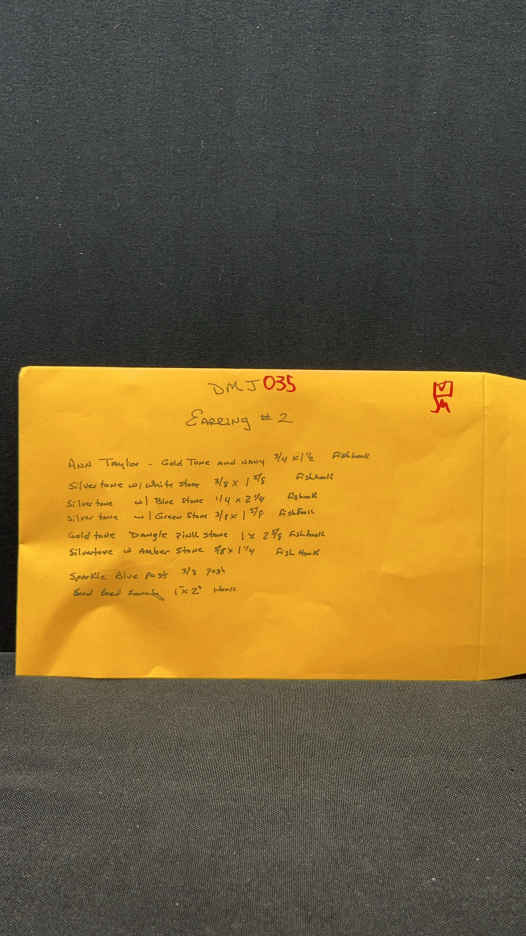 DMJ 035
EARRING # 2
ANN Taylor - Gold Tone and navy 3/4 x 1 1/2 Fishhook
Silvertone w/ White Stone 3/8 x 1 5/8 Fishhook
Silvertone w/ Blue Stone 1/4 x 2 1/4 Fishhook
Silvertone w/ Green Stone 3/8 x 1 5/8 Fishhook
Gold tone Dangle Pink Stone 1 x 2 5/8 Fishhook
Silvertone w Amber Stone 5/8 x 1 1/4 Fish Hook
Sparkle Blue Post 3/8 Post
Bead 1" x 2"